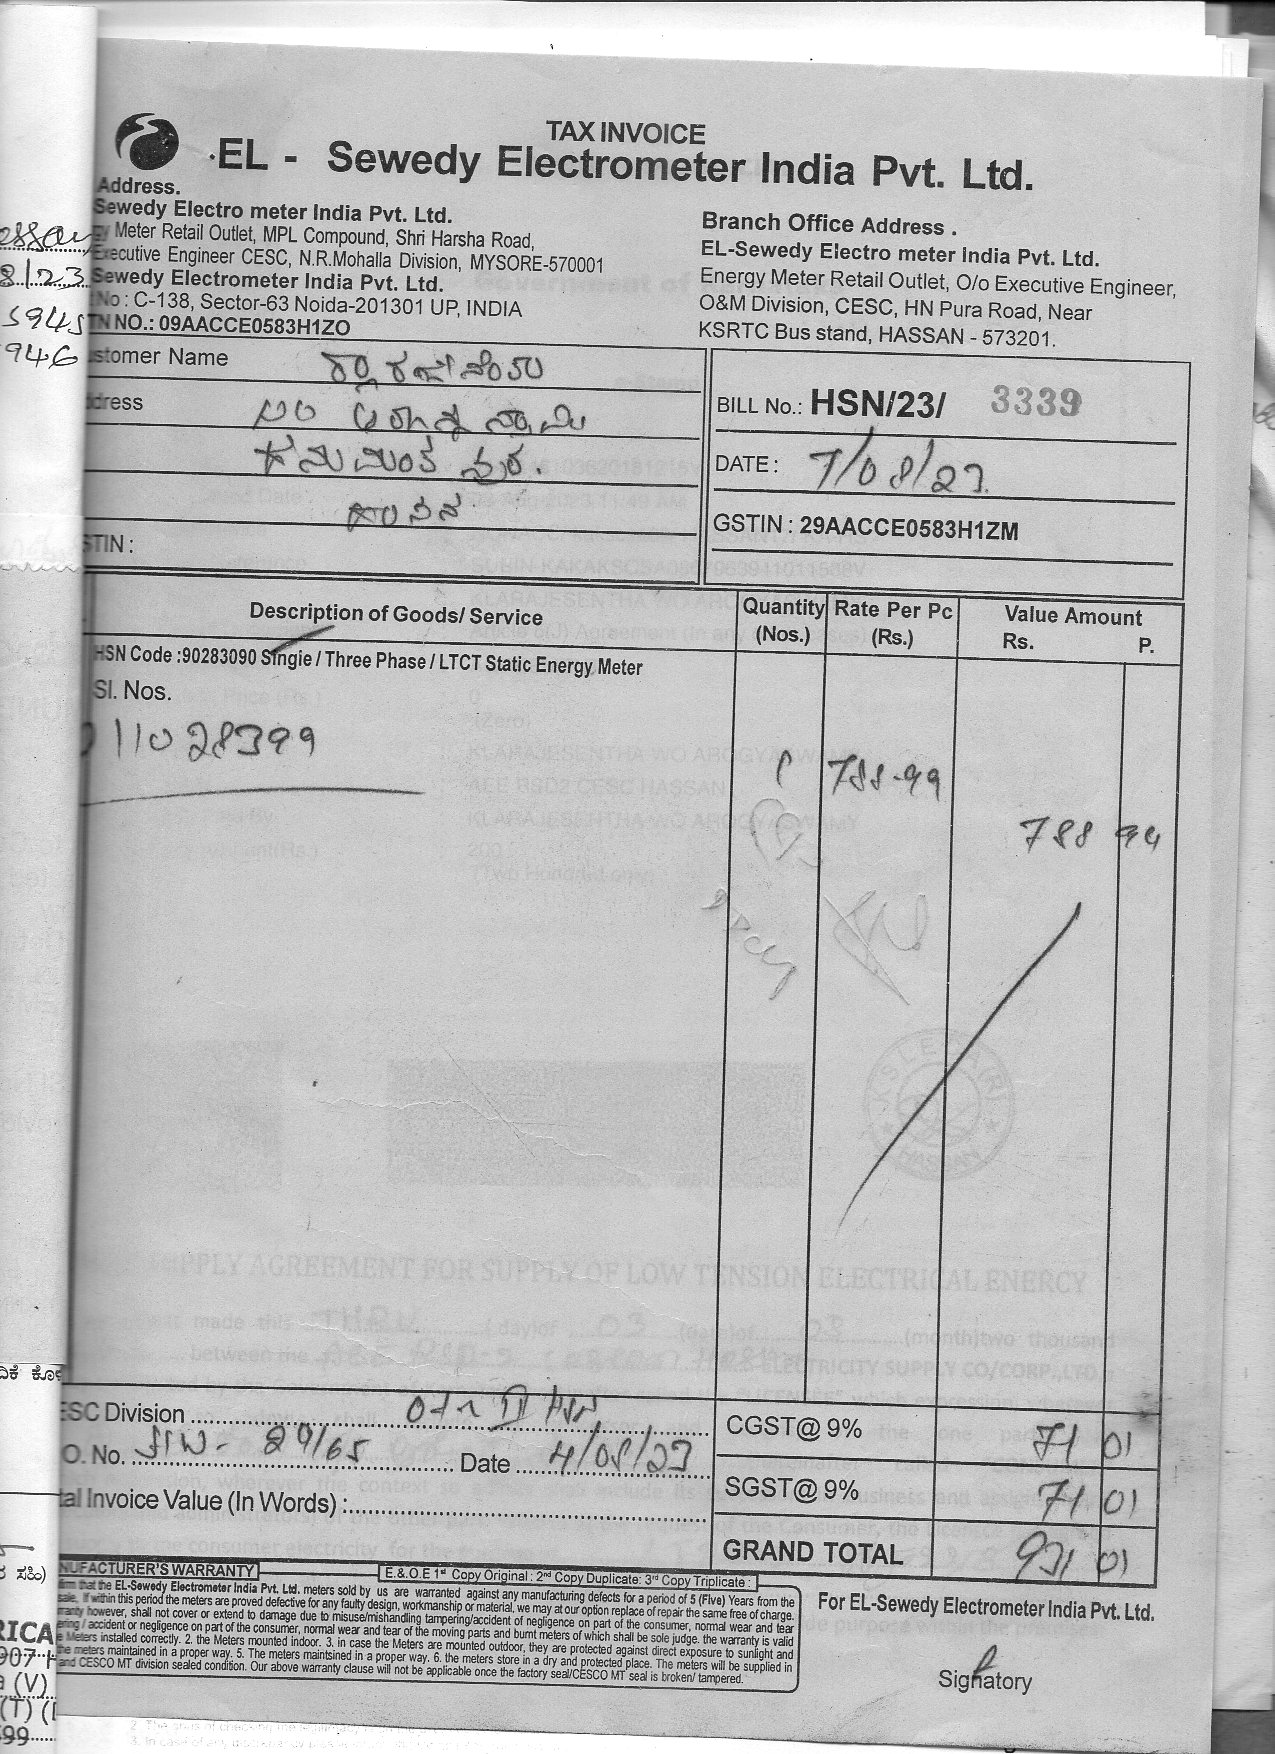 TAX INVOICE
EL - Sewedy Electrometer India Pvt. Ltd.
Address.
Sewedy Electro meter India Pvt. Ltd.
Meter Retail Outlet, MPL Compound, Shri Harsha Road,
Executive Engineer CESC, N.R.Mohalla Division, MYSORE-570001
Sewedy Electrometer India Pvt. Ltd.
No : C-138, Sector-63 Noida-201301 UP, INDIA
TN NO.: 09AACCE0583H1ZO
Branch Office Address .
EL-Sewedy Electro meter India Pvt. Ltd.
Energy Meter Retail Outlet, O/o Executive Engineer,
O&M Division, CESC, HN Pura Road, Near
KSRTC Bus stand, HASSAN - 573201.
stomer Name
dress
STIN :
BILL No.: HSN/23/ 3339
DATE : 7/08/23
GSTIN : 29AACCE0583H1ZM
Description of Goods/ Service
Quantity (Nos.)
Rate Per Pc (Rs.)
Value Amount
Rs. P.
HSN Code :90283090 Single / Three Phase / LTCT Static Energy Meter
Sl. Nos.
11028399
788 94
ESC Division
O. No. 29/65 Date 4/08/23
tal Invoice Value (In Words) :
CGST@ 9% 71 01
SGST@ 9% 71 01
GRAND TOTAL 931 01
NUFACTURER'S WARRANTY
E.& O.E 1st Copy Original : 2nd Copy Duplicate: 3rd Copy Triplicate :
that the EL-Sewedy Electrometer India Pvt. Ltd. meters sold by us are warranted against any manufacturing defects for a period of 5 (Five) Years from the
sale. If within this period the meters are proved defective for any faulty design, workmanship or material, we may at our option replace of repair the same free of charge.
however, shall not cover or extend to damage due to misuse/mishandling tampering/accident of negligence on part of the consumer, normal wear and tear
/ accident or negligence on part of the consumer, normal wear and tear of the moving parts and burnt meters of which shall be sole judge. the warranty is valid
Meters installed correctly. 2. the Meters mounted indoor. 3. in case the Meters are mounted outdoor, they are protected against direct exposure to sunlight and
the meters maintained in a proper way. 5. The meters maintsined in a proper way. 6. the meters store in a dry and protected place. The meters will be supplied in
and CESCO MT division sealed condition. Our above warranty clause will not be applicable once the factory seal/CESCO MT seal is broken/ tampered.
For EL-Sewedy Electrometer India Pvt. Ltd.
Signatory